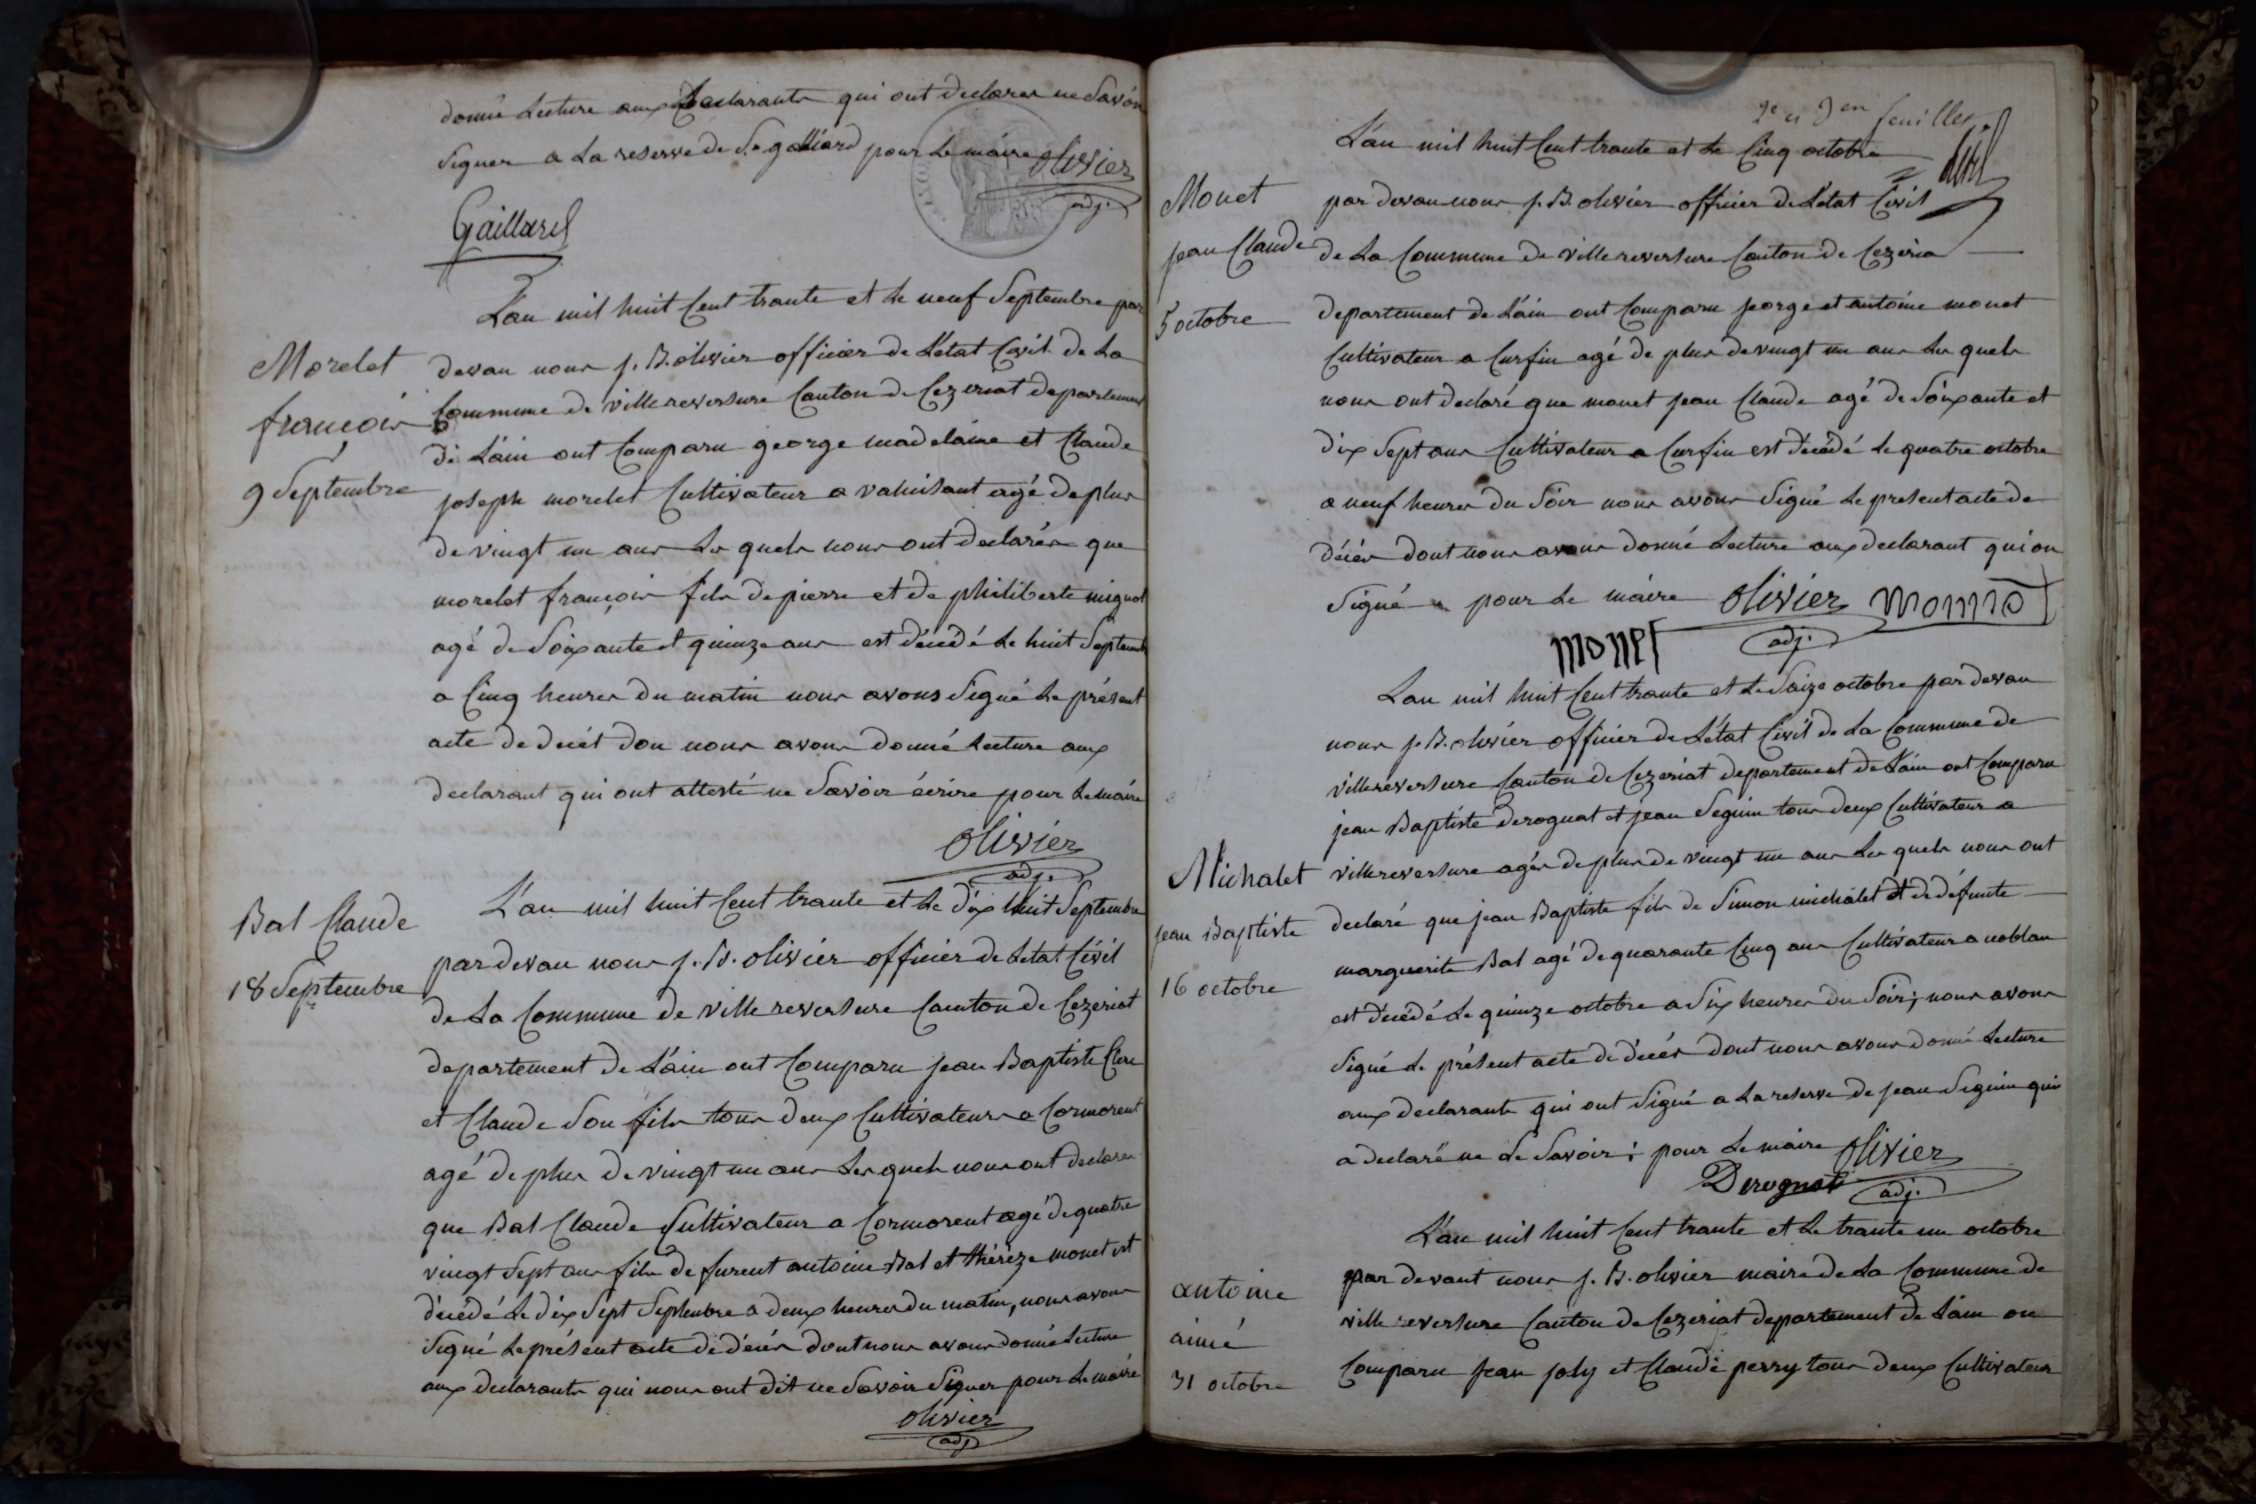 donné Lecture aux Declarants qui ont declarer ne Savoir
Signer a La reserve de S.r galliard pour Le maire olivier
adj.
Gaillard
L'an mil huit Cent trante et le neuf Septembre par
Morelet
françois
9 Septembre
devan nous j. B. olivier officier de L'etat Civil de La
Commune de villereversure Canton de Cezeriat departement
de L'ain ont Comparu george madelaine et Claude
joseph morelet Cultivateur a valuisant agé de plus
de vingt un ans Les quels nous ont declarés que
morelet françois fils de pierre et de philiberte mignot
agé de Soixante et quinze ans est décédé Le huit Septembre
a Cinq heures du matin nous avons Signé Le présent
acte de decét don nous avons donné Lecture aux
declarant qui ont attesté ne Savoir écrire pour Le maire
olivier
adj.
Bal Claude
18 Septembre
L'an mil huit Cent trante et Le dix huit Septembre
par devan nous j. B. olivier officier de Letat Civil
de La Commune de villereversure Canton de Cezériat
departement de L'ain ont Comparu jean Baptiste
et Claude Son fils tous deux Cultivateurs a Cormorent
agé de plus de vingt un ans Les quels nous ont declarer
que Bal Claude Cultivateur a Cormorent agé de quatre
vingt Sept ans fils de furent antoine Bal et thérèze monet est
décédé Le dix Sept Septembre a deux heures du matin, nous avons
Signé Le présent acte de décés dont nous avons donné Lecture
aux declarants qui nous ont dit ne Savoir Signer pour Le maire
olivier
adj.
feuilles
Monet
jean Claude
5 octobre
L'an mil huit Cent trante et Le Cinq octobre
par devan nous j. B. olivier officier de L'état Civil
de La Commune de villereversure Canton de Cezeria
departement de L'ain ont Comparu jeorge et antoine monet
Cultivateur a Curfin agé de plus de vingt un ans Les quels
nous ont declaré que monet jean Claude agé de Soixante et
dix Sept ans Cultivateur a Curfin est décédé Le quatre octobre
a neuf heures du Soir nous avons Signé Le present acte de
décés dont nous avons donné Lecture aux declarant qui on
Signé pour Le maire olivier
adj.
monet
L'an mil huit Cent trante et Le Saize octobre par devan
nous j. B. olivier officier de L'état Civil de La Commune de
villereversure Canton de Cezeriat departement de L'ain ont Comparu
jean Baptiste Derognat et jean Seguin tous deux Cultivateur a
Michalet
jean Baptiste
16 octobre
villereversure agés de plus de vingt un ans Les quels nous ont
declaré que jean Baptiste fils de Simon michalet et de défunte
marguerite Bal agé de quarante Cinq ans Cultivateur a noblan
est décédé Le quinze octobre a Six heures du Soir; nous avons
Signé Le présent acte de décés dont nous avons donné Lecture
aux declarants qui ont Signé a La reserve de jean Seguin qui
a declaré ne Le Savoir; pour Le maire olivier
Derognat adj.
antoine
aimé
31 octobre
L'an mil huit Cent trante et Le trante un octobre
par devant nous j. B. olivier maire de La Commune de
villereversure Canton de Cezeriat departement de L'ain on
Comparu jean joly et Claude perry tous deux Cultivateur